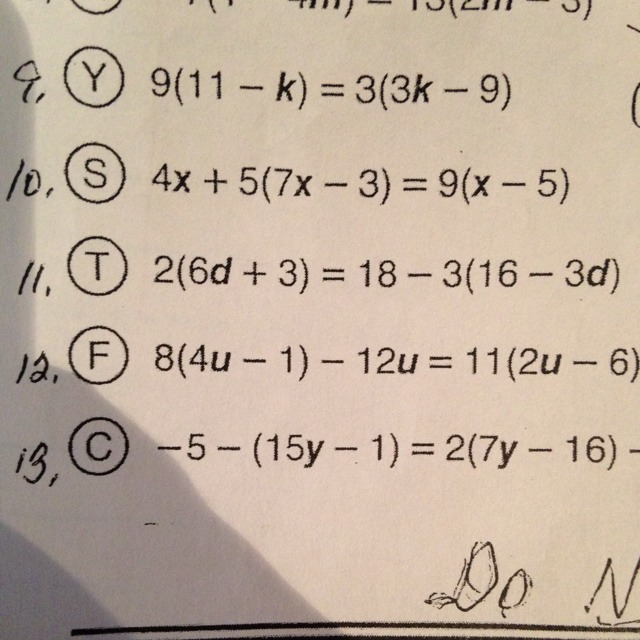 9. Y 9(11 − k) = 3(3k − 9)
10. S 4x + 5(7x − 3) = 9(x − 5)
11. T 2(6d + 3) = 18 − 3(16 − 3d)
12. F 8(4u − 1) − 12u = 11(2u − 6)
13. C −5 − (15y − 1) = 2(7y − 16) −
Do N